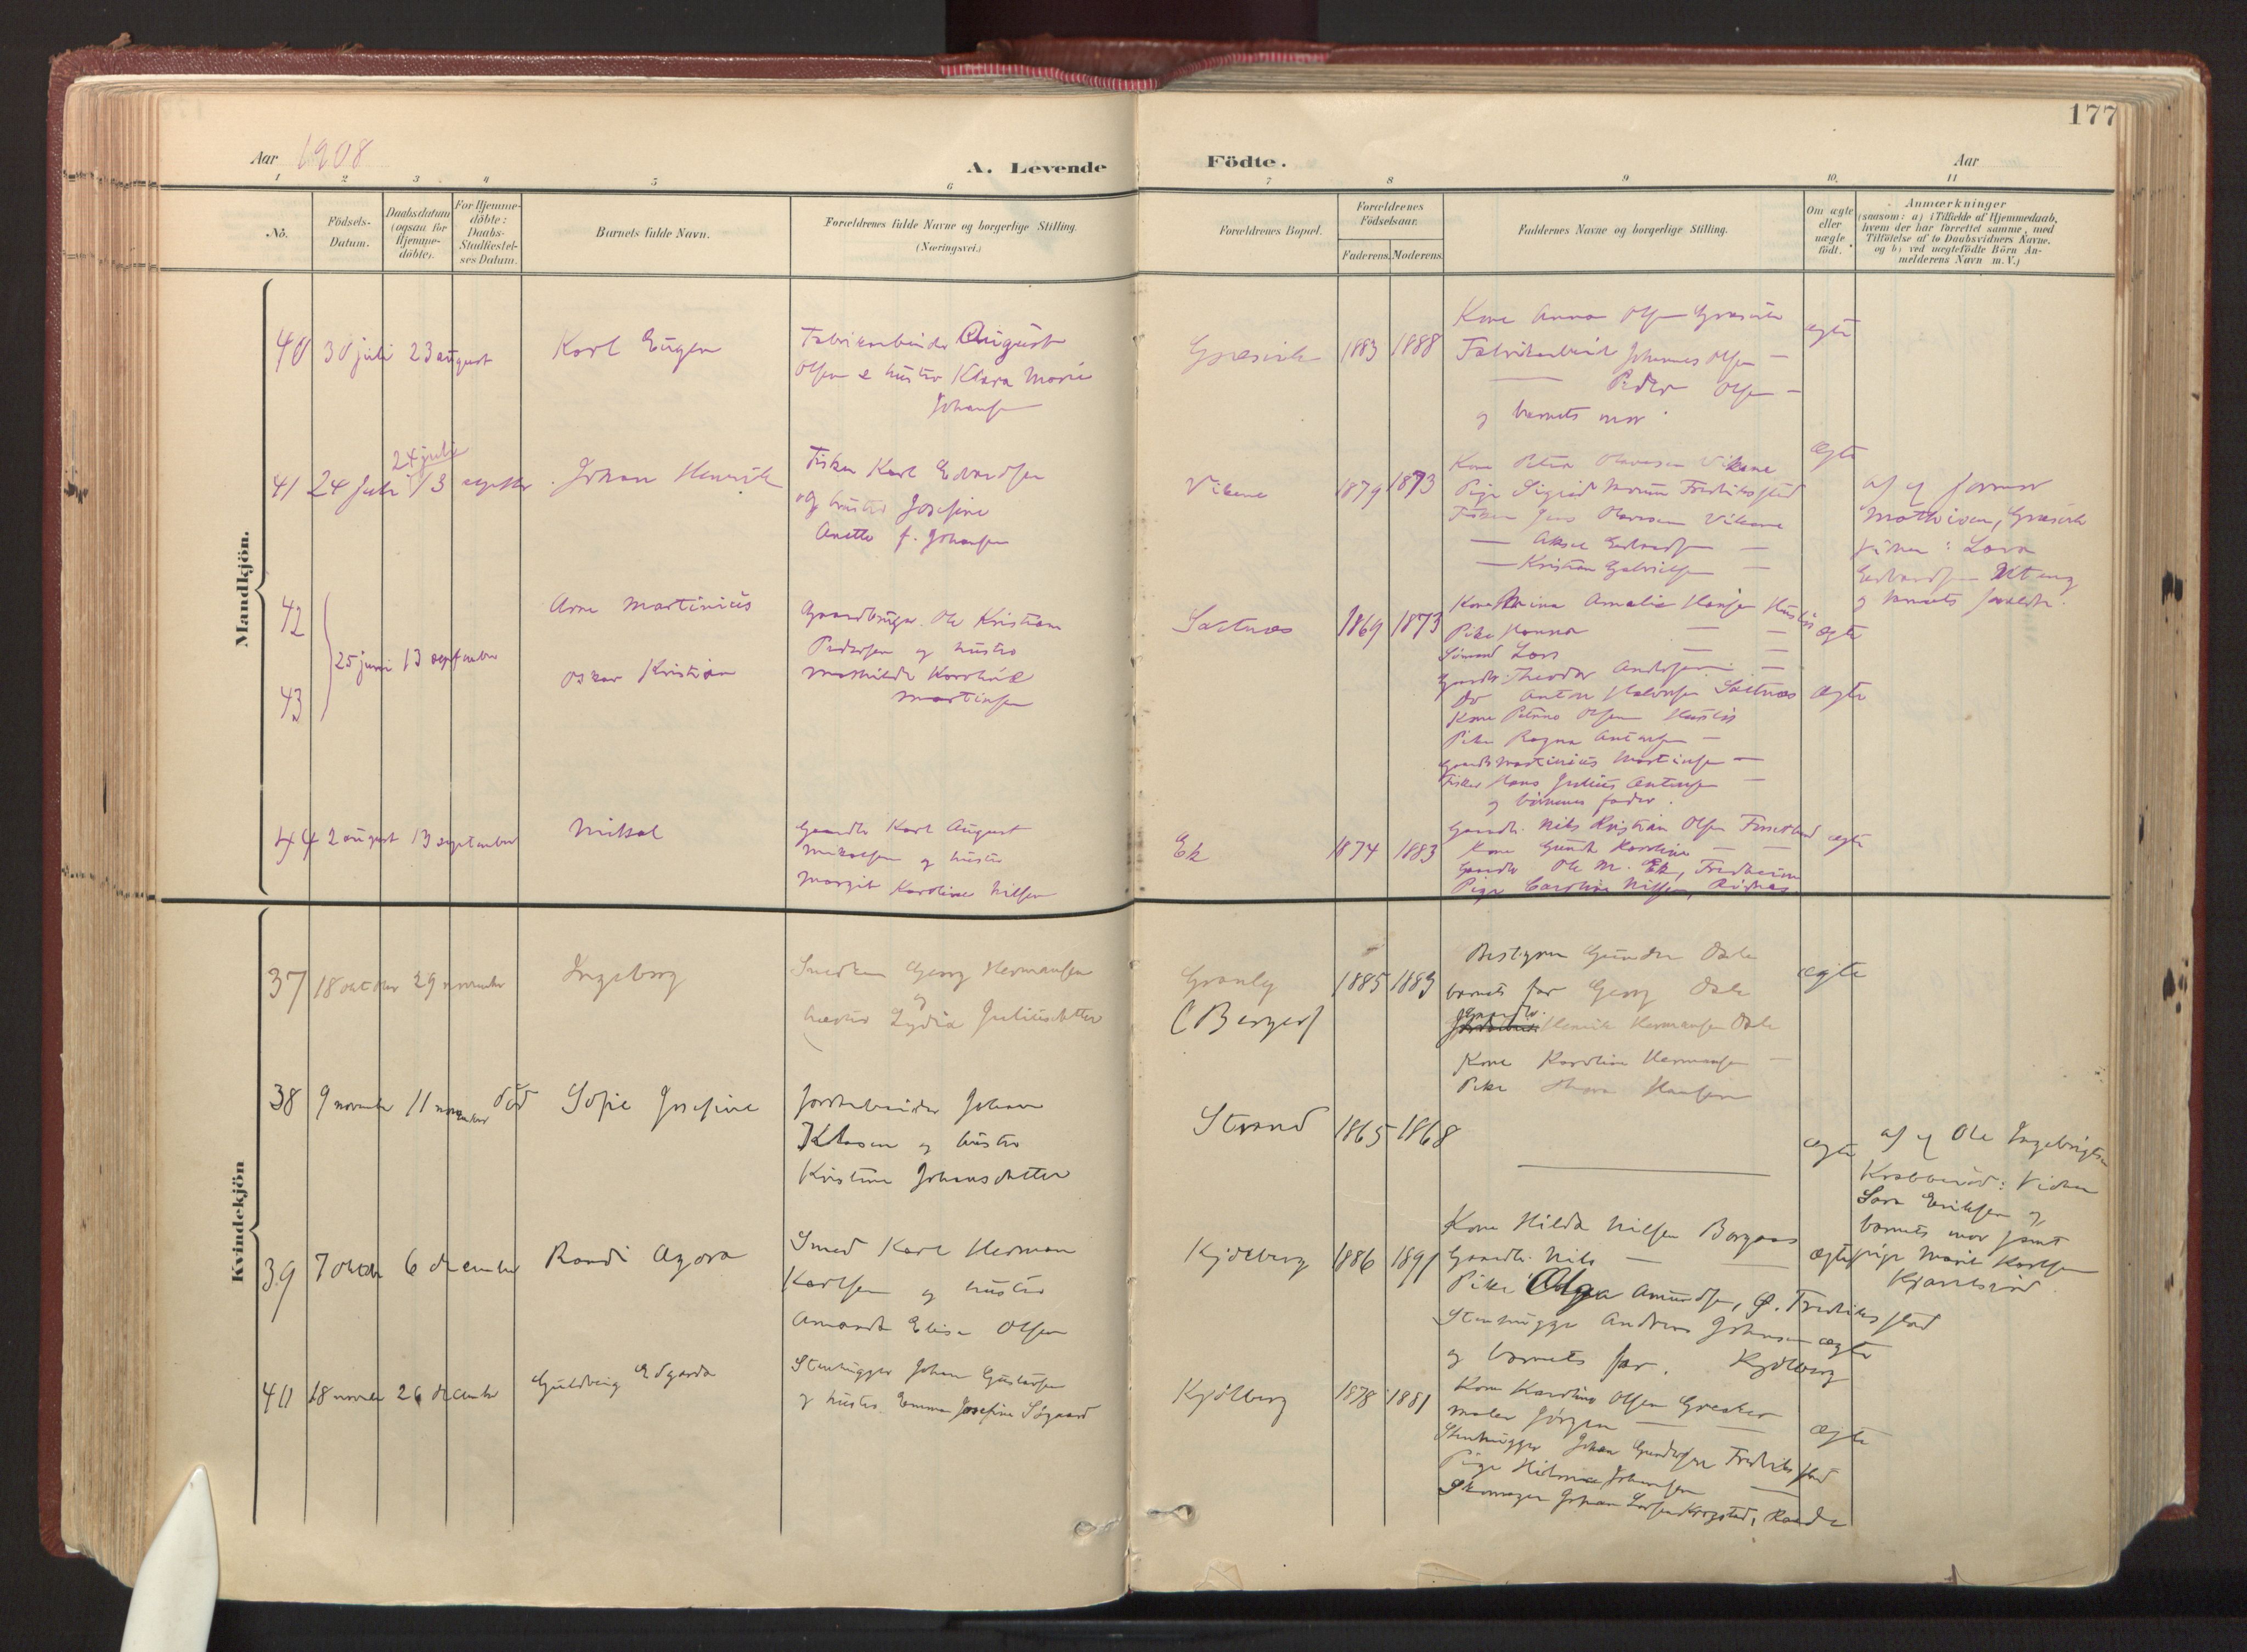 177
Aar 1908
A. Levende Födte.
Aar
1 2 3 4 5 6 7 8 9 10. 11
No.
Födsels-Datum.
Daabsdatum (ogsaa for Hjemme-döbte).
For Hjemme-döbte: Daabs-Stadfæstel-ses Datum.
Barnets fulde Navn.
Forældrenes fulde Navne og borgerlige Stilling.
(Næringsvei.)
Forældrenes Bopæl.
Forældrenes Födselsaar.
Faderens. Moderens.
Faddernes Navne og borgerlige Stilling.
Om ægte eller uægte födt.
Anmærkninger
(saasom: a) i Tilfælde af Hjemmedaab, hvem der har forrettet samme, med Tilföielse af to Daabsvidners Navne. og b) ved uægtefödte Börn An-melderens Navn m. V.)
Mandkjön.
40 30 juli 23 august Karl Eugen
Fabrikarbeider August
Olsen & hustru Klara Marie
Johansen
Græsvik 1883 1888
Kone Anna Olsen Græsvik
Fabrikarbeid Johannes Olsen —
— Peder Olsen —
og barnets mor
ægte
41 24 juli 24 juli 13 septbr Johan Henrik
Fisker Karl Edvardsen
og hustru Josefine
Anette f. Johansen
Vikene 1879 1873
Kone Petra Olavesen Vikene
Pige Sigrid Fredriksstad
Fisker Jens Olavesen Vikene
— Aksel Edvardsen —
— Kristian Gabrielsen —
ægte
af gj jormor
Mathisen, Græsvik
Lovra
Edvardsen
og barnets forældre.
42 Arne Martinius
25 juni 13 september
43 Oskar Kristian
Gaardbruger Ole Kristian
Pedersen og hustru
Mathilde
Martinsen
1869 1873
Kone Mina Amalie Hansen
Pike Hanna — —
Sömand Lars — —
Gaardb. Theodor Andersen —
Do Anton Halvorsen
Kone Petrine Olsen
Pike Ragna Antonsen —
Gaardb Martinius Martinsen —
Fisker Hans Julius Antonsen —
og börnenes fader.
ægte
ægte
44 2 august 13 september Mikal
Gaardbr Karl August
Mikalsen og hustru
Margit Karoline Nilsen
Ek 1874 1883
Gaardb. Nils Kristian Olsen
Kone Gunda Karoline — —
Gaardb Ole M. Ek, Fredheim
Pige Caroline Nilsen,
ægte
Kvindekjön
37 18 oktober 29 november Ingeborg
Snedker Georg Hermansen
og
hustru Lydia Juliusdatter
Granly
(Berger)
1885 1883
Bestyrer Gunder Dale
barnets far Georg Dale
Gaardb. Henrik Hermansen Dale
Kone Karoline Hermansen —
Pike Hansen
ægte
38 9 november 11 november död Sofie Josefine
Jordarbeider Johan
Klasen og hustru
Kristine Johansdatter
Strand 1865 1868
ægte
af gj Ole Ingebrigtsen
Krabberöd: Vidner
Lars Eriksen og
barnets mor samt
pige Marie Karlsen
39 7 oktobr 6 december Randi Agora
Smed Karl Herman
Karlsen og hustru
Amanda Elise Olsen
Kjölberg 1886 1891
Kone Hilda Nilsen Borgaas
Gaardb. Nils — —
Pike Olga Amundsen, Ø. Fredriksstad
Stenhugger Andreas Johansen
og barnets far. Kjölberg
ægte
ægte
40 18 november 26 december Guldveig Edgarda
Stenhugger Johan Gustavsen
og hustru Emma Josefine Sögaard
Kjölberg 1878 1881
Kone Karoline Olsen Greaker
Maler Jörgen — —
Stenhugger Johan Gundersen Fredriksstad
Pige Hilma Johansen —
Skomager Johan Larsen Krogstad, Raade
ægte